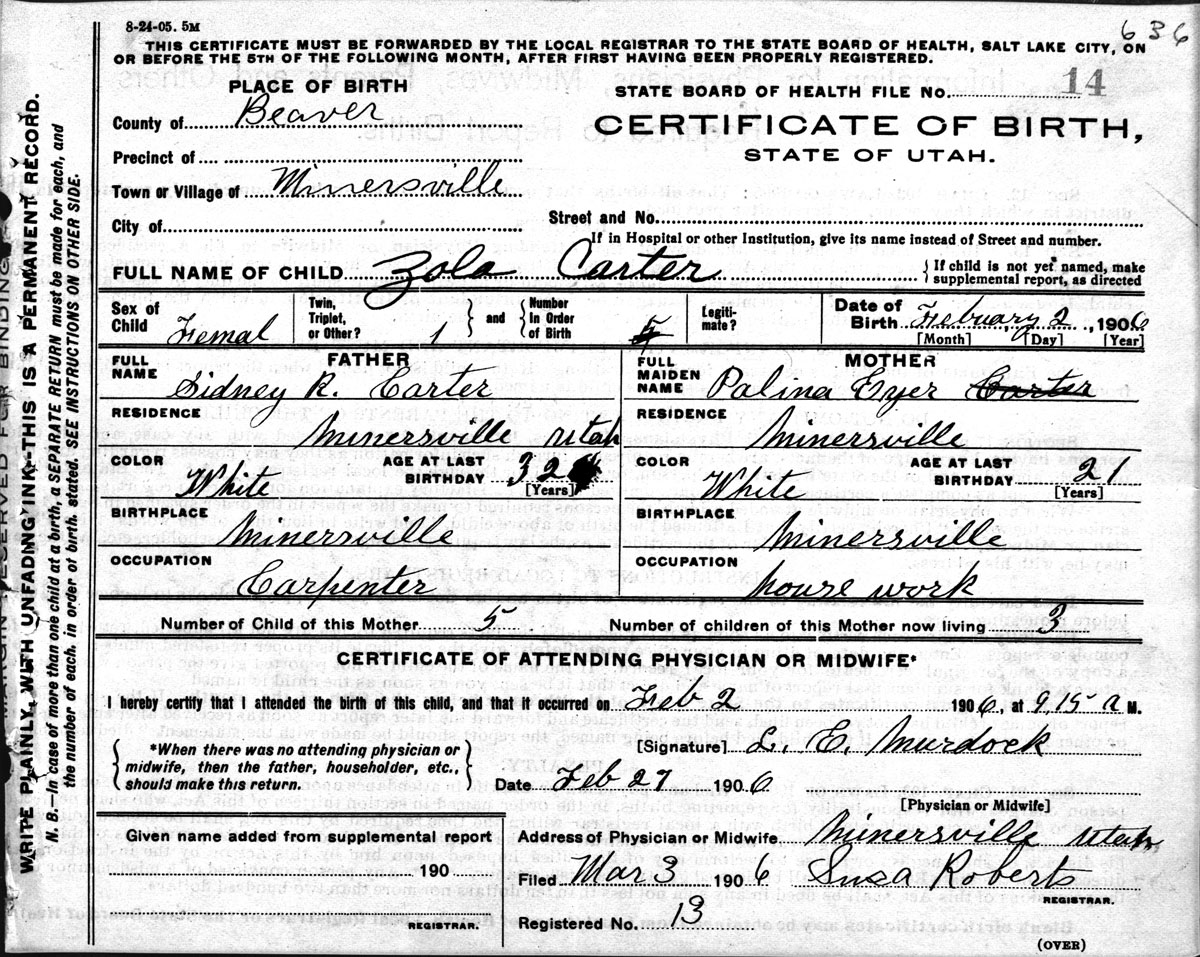 8-24-05. 5M
636
THIS CERTIFICATE MUST BE FORWARDED BY THE LOCAL REGISTRAR TO THE STATE BOARD OF HEALTH, SALT LAKE CITY, ON
OR BEFORE THE 5TH OF THE FOLLOWING MONTH, AFTER FIRST HAVING BEEN PROPERLY REGISTERED.
PLACE OF BIRTH
STATE BOARD OF HEALTH FILE No. 14
County of Beaver
CERTIFICATE OF BIRTH,
STATE OF UTAH.
Precinct of
Town or Village of Minersville
City of
Street and No.
If in Hospital or other Institution, give its name instead of Street and number.
FULL NAME OF CHILD Zola Carter
{ If child is not yet named, make
supplemental report, as directed
Sex of Child Femal
Twin, Triplet, or Other? 1
} and {
Number In Order of Birth
Legiti-mate?
Date of Birth February 2, 1906
[Month] [Day] [Year]
FATHER
FULL NAME Sidney R. Carter
RESIDENCE
Minersville Utah
COLOR White
AGE AT LAST BIRTHDAY 32
[Years]
BIRTHPLACE
Minersville
OCCUPATION
Carpenter
MOTHER
FULL MAIDEN NAME Palina Eyer Carter
RESIDENCE
Minersville
COLOR White
AGE AT LAST BIRTHDAY 21
[Years]
BIRTHPLACE
Minersville
OCCUPATION
house work
Number of Child of this Mother 5
Number of children of this Mother now living 3
CERTIFICATE OF ATTENDING PHYSICIAN OR MIDWIFE*
I hereby certify that I attended the birth of this child, and that it occurred on Feb 2 1906, at 9 15 a M.
{ *When there was no attending physician or
midwife, then the father, householder, etc.,
should make this return. }
[Signature] L. E. Murdock
Date Feb 27 1906
[Physician or Midwife]
Given name added from supplemental report
190
REGISTRAR.
Address of Physician or Midwife Minersville Utah
Filed Mar 3 1906 Susa Roberts
REGISTRAR.
Registered No. 13
(OVER)
MARGIN RESERVED FOR BINDING
WRITE PLAINLY, WITH UNFADING INK--THIS IS A PERMANENT RECORD.
N. B.—In case of more than one child at a birth, a SEPARATE RETURN must be made for each, and
the number of each, in order of birth, stated. SEE INSTRUCTIONS ON OTHER SIDE.